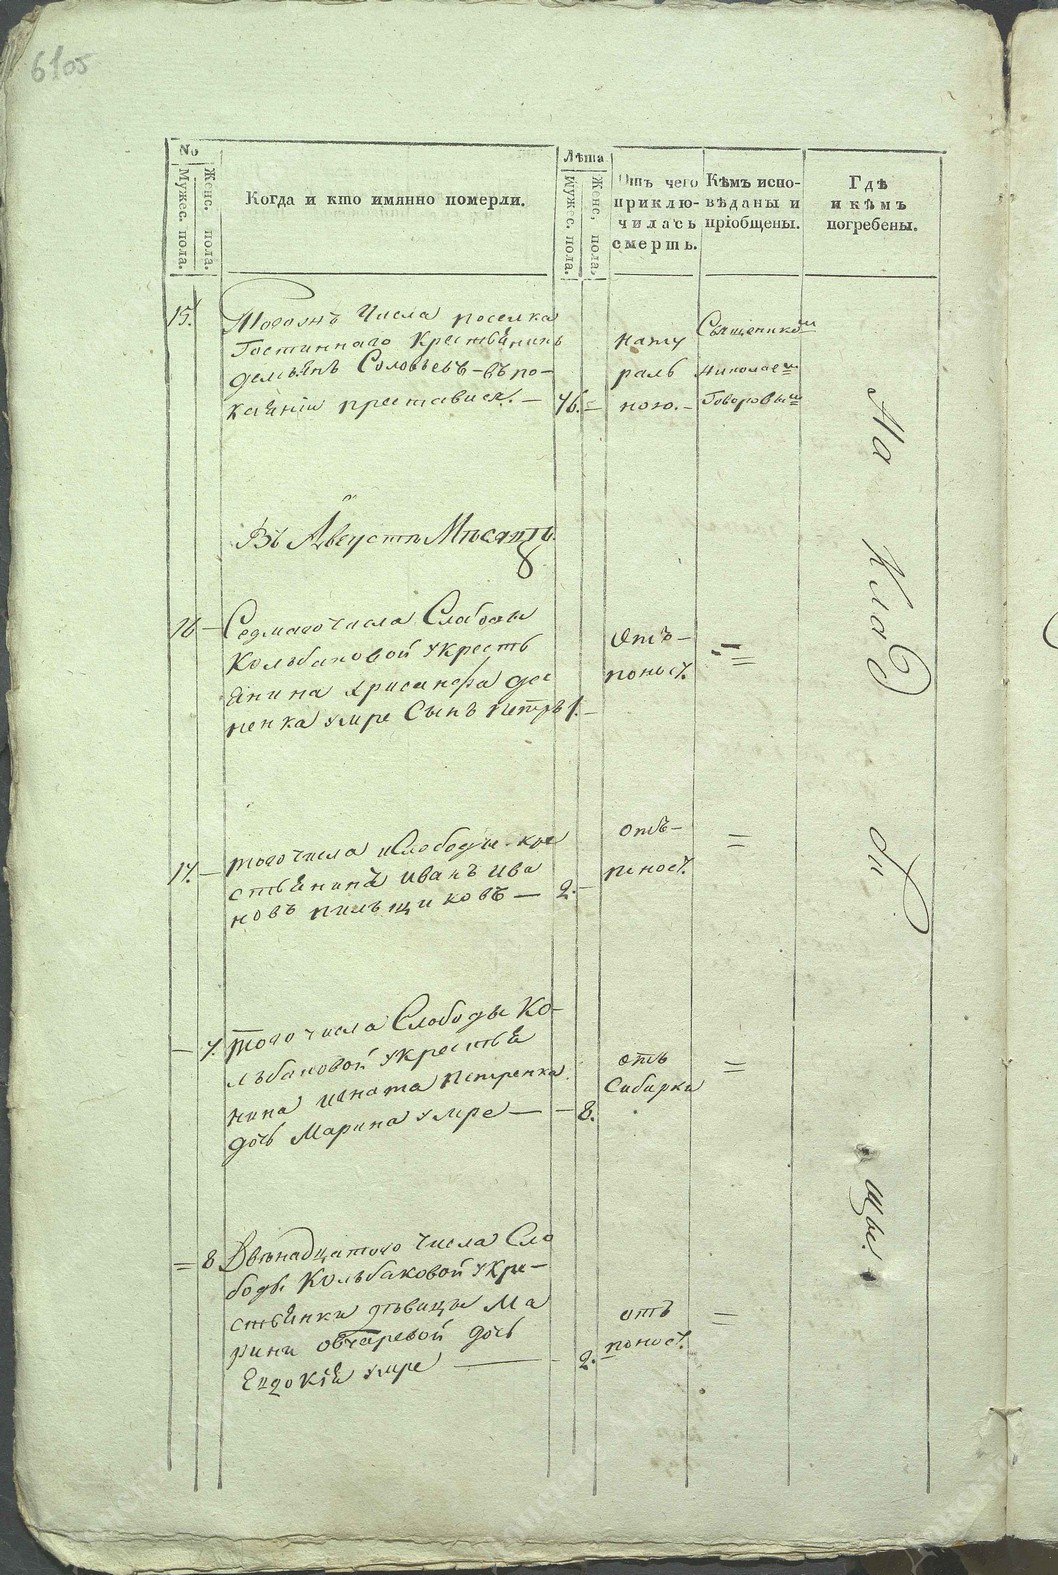 6105
No
Мужес. пола.
Женс. пола.
Когда и кто имянно померли.
Лѣта
Мужес. пола.
Женс, пола.
Отъ чего
приклю-
чилась
смерть.
Кѣмъ испо-
вѣданы и
пріобщены.
Гдѣ
и кѣмъ
погребены.
15.
Тогожъ Числа поселка
Гостиннаго Крестьянинъ
Демьянъ Соловьевъ - въ по-
каяніи преставися. — 76. -
нату
раль
ною. -
Священикомъ
Николаемъ
Говоровымъ
Въ Августѣ Мѣсяцѣ.
16 — Седмаго числа Слободы
Колыбаковой укресть
янина Хрисанфа
ненка умре Сынъ Петръ 1. -
отъ -
понос.
=
17. — того числа Слободы кре
стьянинъ Иванъ Ива
новъ Пильщиковъ — 2. -
отъ -
понос.
=
— 7. того числа Слободы Ко-
лыбаковой укрестья
нина Игната Петренка
дочь Марина умре — — 8.
отъ
Сибирки
=
= 8 Двѣнадцатого числа Сло
боды Колыбаковой укре-
стьянки дѣвицы Ма
рины Овчаревой дочь
Евдокія умре — - 2.
отъ
понос.
=
На Клад би щы.